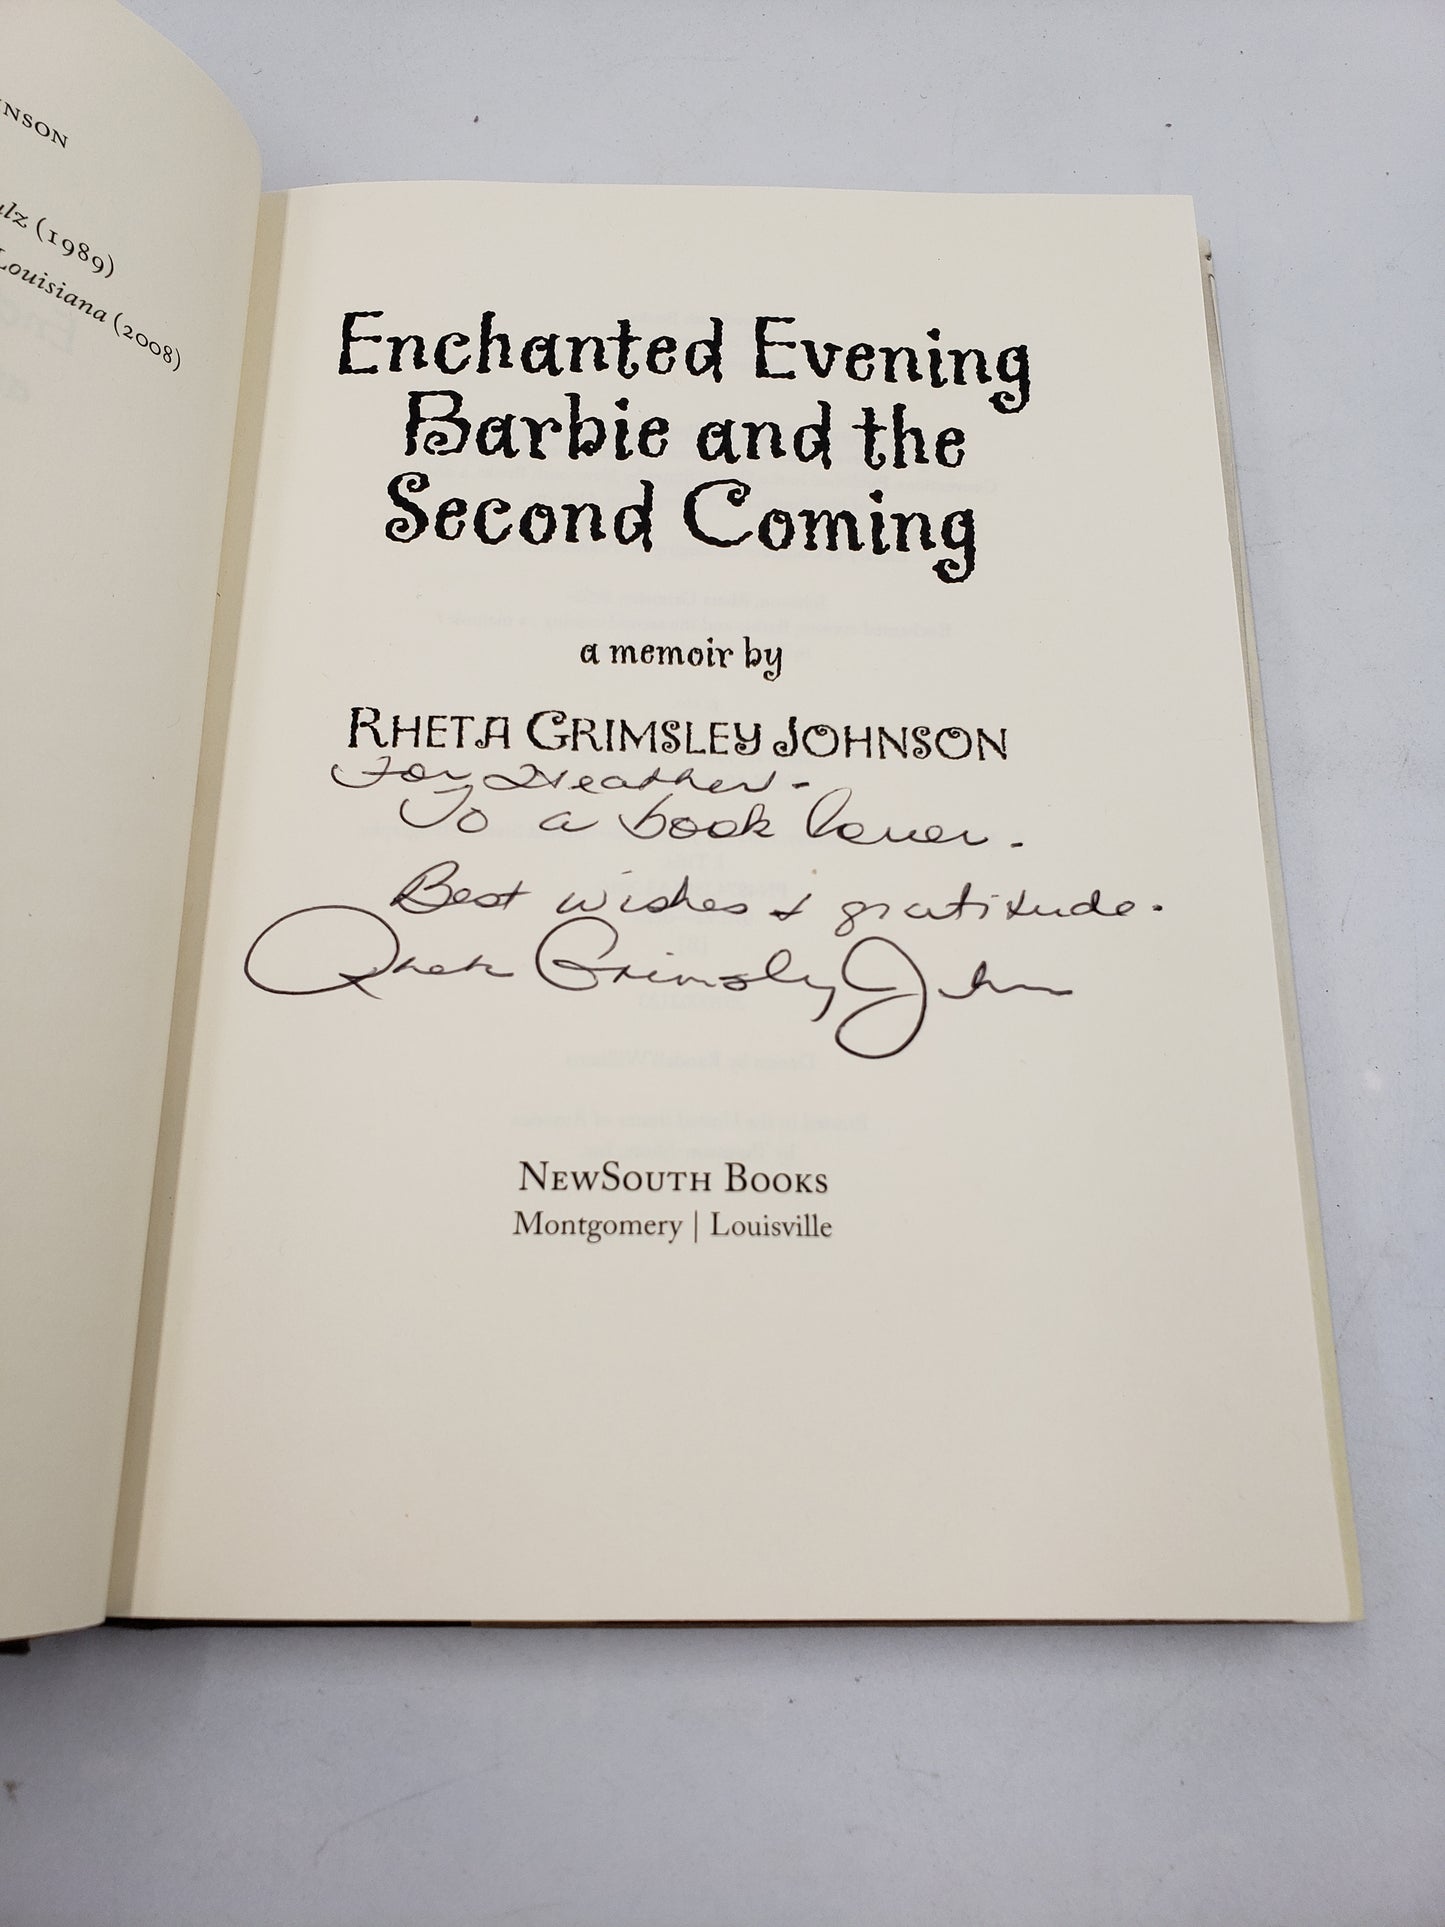 NSON
lz (1989)
Louisiana (2008)
Enchanted Evening
Barbie and the
Second Coming
a memoir by
RHETA GRIMSLEY JOHNSON
For Heather -
To a book lover.
Best wishes & gratitude.
Rheta Grimsley Johnson
NEWSOUTH BOOKS
Montgomery | Louisville